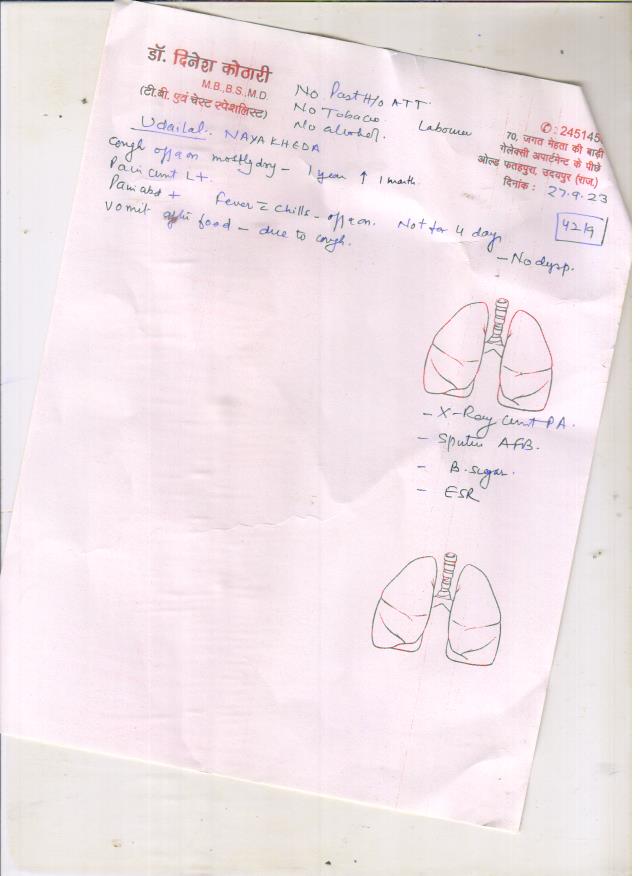 डॉ. दिनेश कोठारी
M.B.,B.S.,M.D.
(टी.बी. एवं चेस्ट स्पेशलिस्ट)
No Past H/o ATT.
No Tobacco
No alcohol.
Labour
✆: 245145
70, जगत मेहता की बाड़ी
गेलेक्सी अपार्टमेन्ट के पीछे
ओल्ड फतहपुरा, उदयपुर (राज.)
दिनांक : 27.9.23
Udailal. NAYAKHEDA
Cough off & on mostly dry - 1 year ↑ 1 month.
Pain L+.
Pain abd + Fever = chills - off & on. Not for 4 days
Vomit after food - due to cough.
- No dysp.
- X-Ray PA.
- Sputum AFB.
- B. sugar.
- ESR